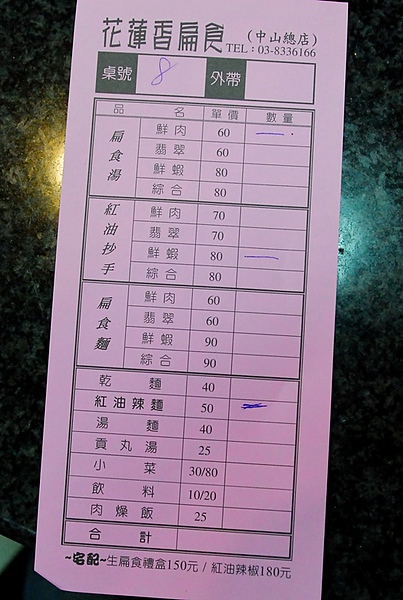 花蓮香扁食(中山總店)
TEL：03-8336166
桌號 8 外帶
品名 單價 數量
扁食湯
鮮肉 60 一
翡翠 60
鮮蝦 80
綜合 80
紅油抄手
鮮肉 70
翡翠 70
鮮蝦 80 一
綜合 80
扁食麵
鮮肉 60
翡翠 60
鮮蝦 90
綜合 90
乾麵 40
紅油辣麵 50
湯麵 40
貢丸湯 25
小菜 30/80
飲料 10/20
肉燥飯 25
合計
~宅配~生扁食禮盒150元 / 紅油辣椒180元